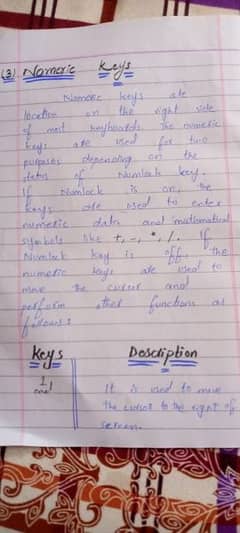 (3) Numeric Keys
Numeric keys are
location on the right side
of most keyboards. The numeric
keys are used for two
purposes depending on the
status of Numlock key.
If Numlock is on, the
keys are used to enter
numeric data and mathmatical
symbols like +, -, *, /. If
Numlock key is off, the
numeric keys are used to
move the cursor and
perform other functions as
follows:
Keys Description
1
end It is used to move
the cursor to the right of
screen.